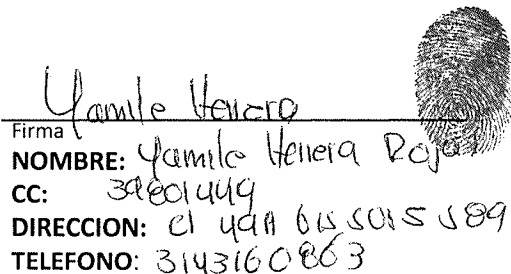 Yamile Herrera
Firma
NOMBRE: Yamile Herrera Rojas
CC: 39801449
DIRECCION: cl 49A
TELEFONO: 3143160863